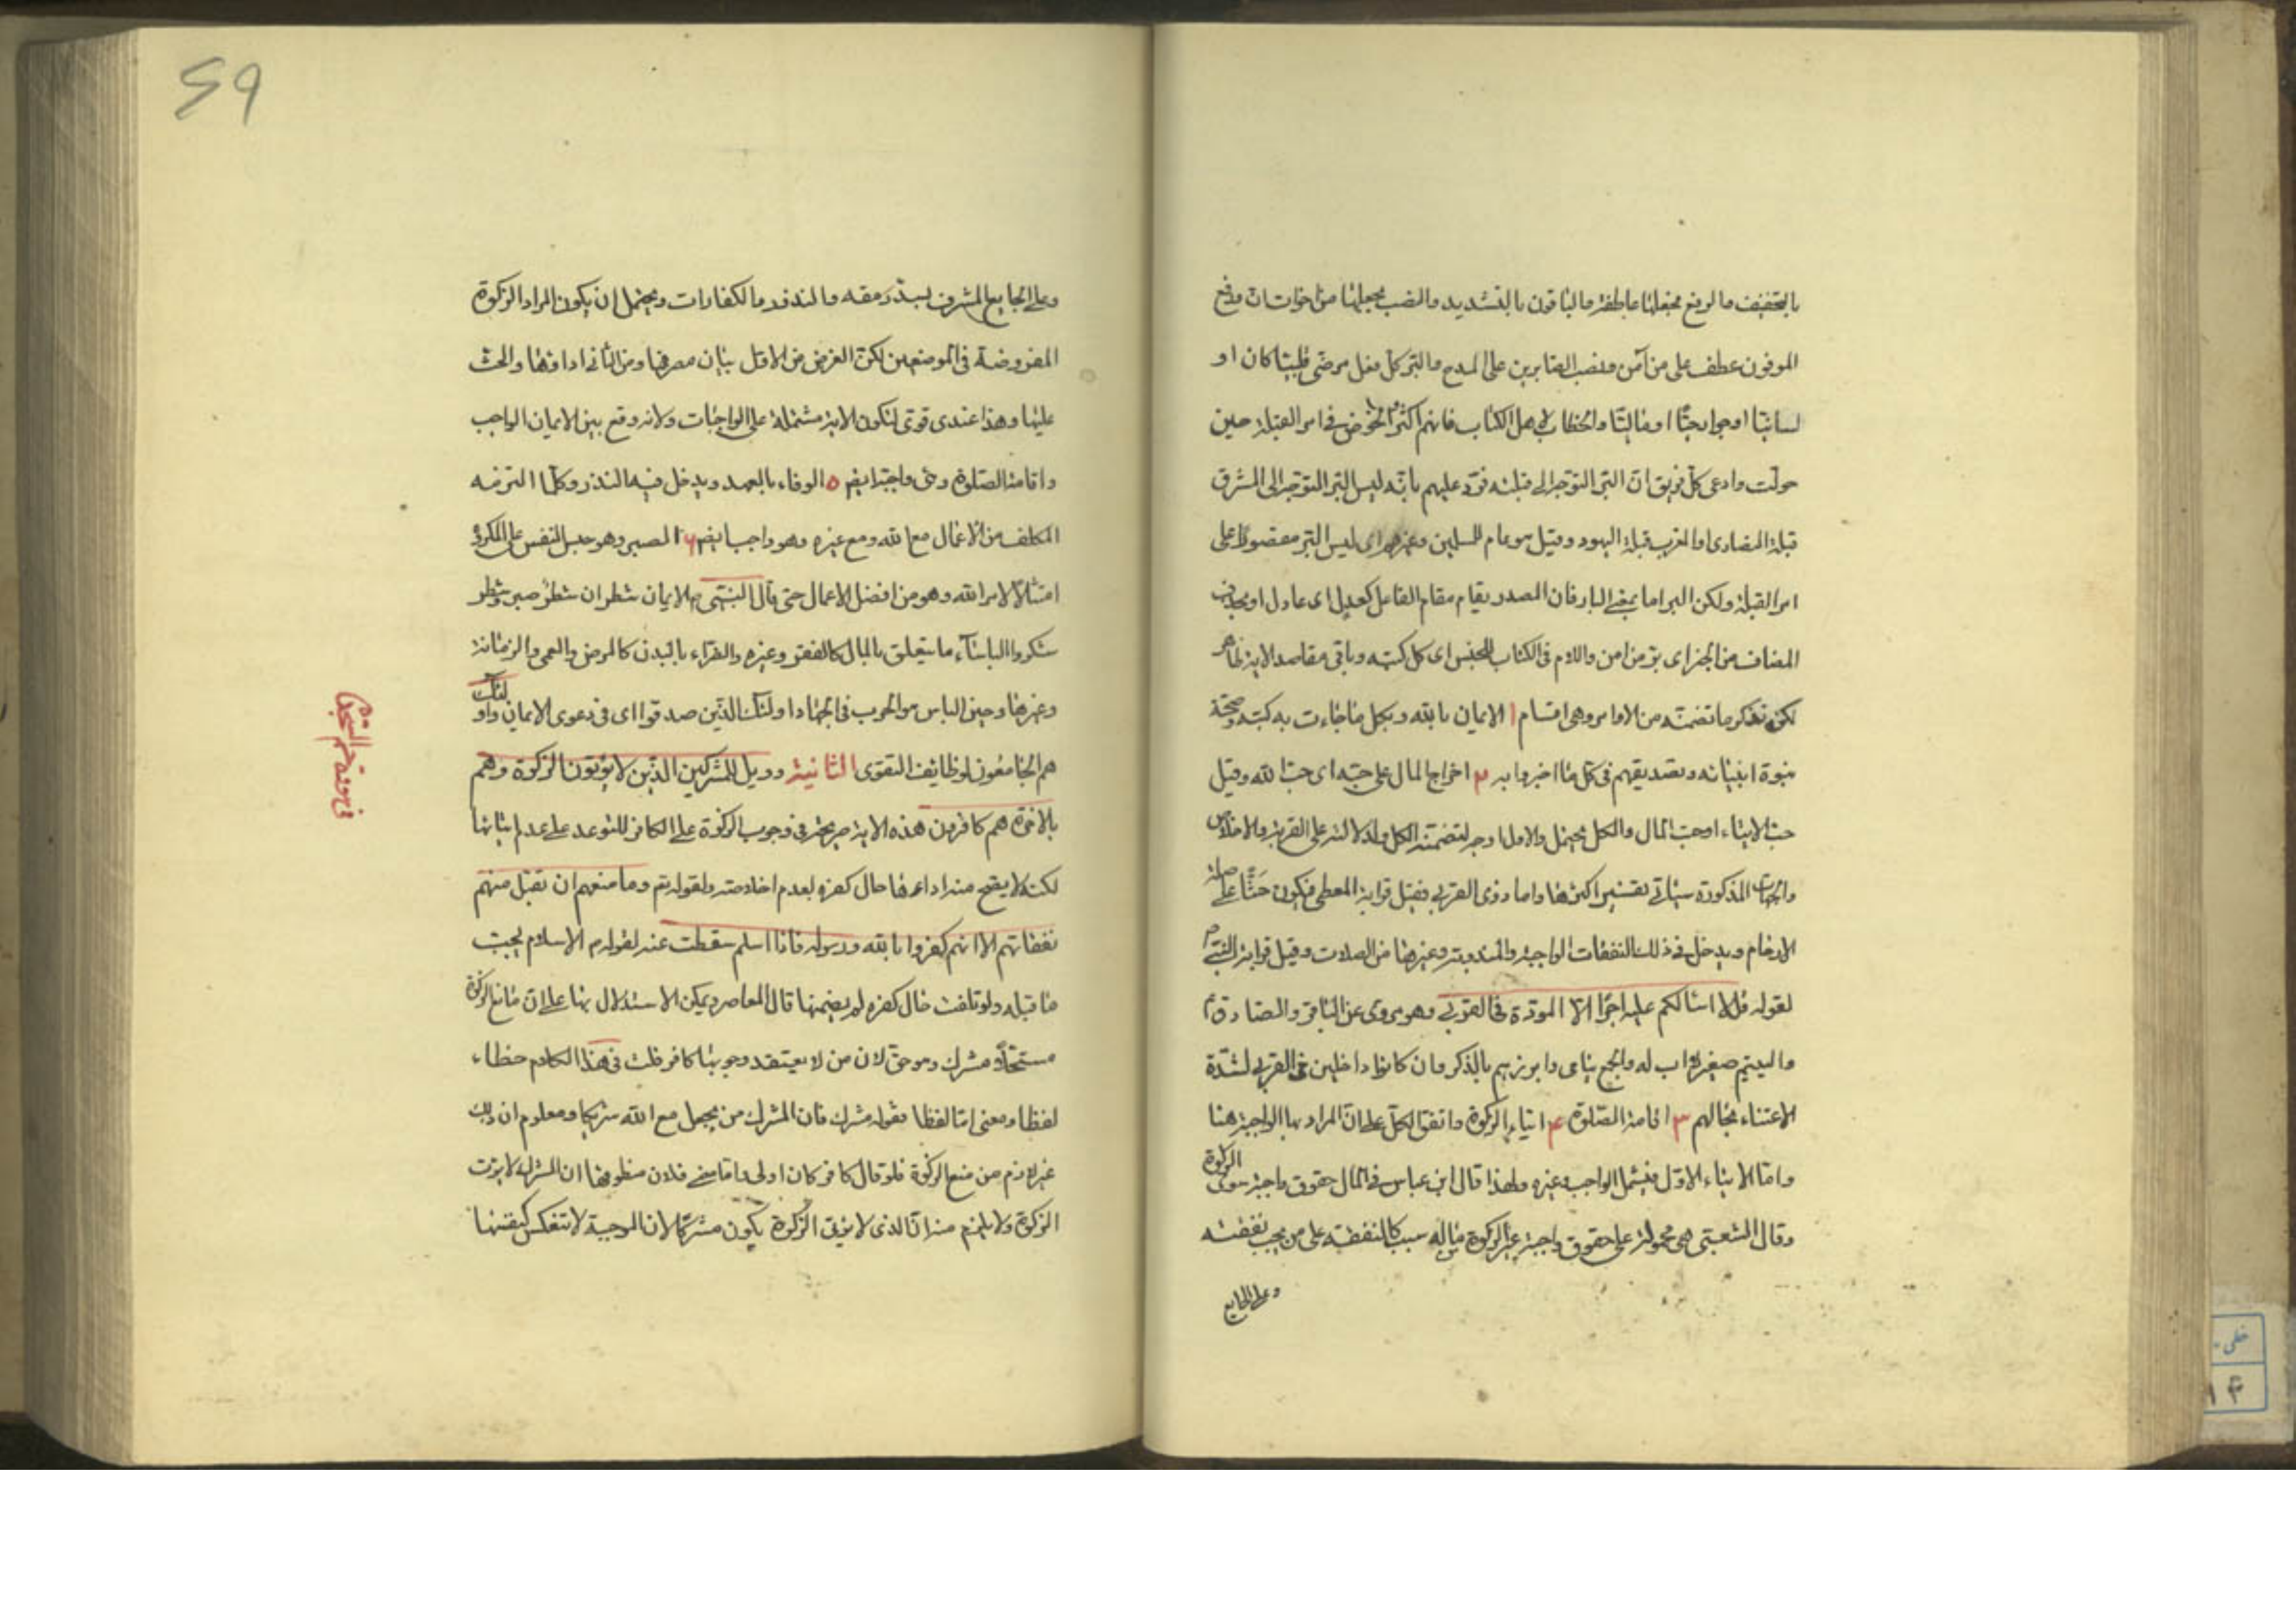 بالتخفيف والرفع بجعلها عاطفة والباقون بالتشديد والنصب بجعلها من اخوات ان ورفع
الموفون عطف على من آمن ونصب الصابرين على المدح والبر كل فعل مرضى قلبيا كان او
لسانيا او جوارحيا او ماليا والخطاب لاهل الكتاب فانهم اكثروا الخوض فى امر القبلة حين
حولت وادعى كل فريق ان البر التوجه الى قبلته فرد عليهم بانه ليس البر التوجه الى المشرق
قبلة النصارى او المغرب قبلة اليهود وقيل هو عام للمسلمين وغيرهم اى ليس البر مقصورا على
امر القبلة ولكن البر اما بمعنى البار فان المصدر يقام مقام الفاعل كعدل اى عادل او بحذف
المضاف من الخبر اى بر من امن واللام فى الكتاب للجنس اى كل كتبه وباقى مقاصد الاية ظاهر
لكن نذكر ما تضمنته من الاوامر وهى اقسام ١ الايمان بالله وبكل ما جاءت به كتبه وصحة
نبوة انبيائه وتصديقهم فى كل ما اخبروا به ٢ اخراج المال على حبه اى حب الله وقيل
حب الايتاء او حب المال والكل محتمل والاول اوجه لتضمنه الكل ولدلالته على القربة والاخلاص
والجهات المذكورة سياتى تفسير اكثرها واما ذوى القربى فقيل قرابة المعطى فيكون حثا على صلة
الارحام ويدخل فى ذلك النفقات الواجبة والمندوبة وغيرها من الصلات وقيل قرابة النبى م
لقوله قل لا اسالكم عليه اجرا الا المودة فى القربى وهو مروى عن الباقر والصادق ع
واليتيم صغير لا اب له والجمع يتامى وابرزهم بالذكر وان كانوا داخلين فى القربى لشدة
الاعتناء بحالهم ٣ اقامة الصلوة ۴ ايتاء الزكوة واتفق الكل على ان المراد بها الواجبة هنا
واما الايتاء الاول فيشمل الواجب وغيره ولهذا قال ابن عباس فى المال حقوق واجبة سوى الزكوة
وقال الشعبى هى محمولة على حقوق واجبة غير الزكوة مما له سبب كالنفقة على من يجب نفقته
وعلى الجايع
59
وعلى الجايع المشرف لسد رمقه والنذور والكفارات ويحتمل ان يكون المراد الزكوة
المفروضة فى الموضعين لكن الغرض من الاول بيان مصرفها ومن الثانى اداؤها والحث
عليها وهذا عندى قوى لتكون الاية مشتملة على الواجبات ولانه وقع بين الايمان الواجب
واقامة الصلوة وهى واجبة ايضا ٥ الوفاء بالعهد ويدخل فيه النذر وكلما التزمه
المكلف من الاعمال مع الله ومع غيره وهو واجب ايضا ۶ الصبر وهو حبس النفس على المكروه
امتثالا لامر الله وهو من افضل الاعمال حتى قال النبى م الايمان شطران شطر صبر وشطر
شكر والباساء ما يتعلق بالمال كالفقر وغيره والضراء بالبدن كالمرض والعمى والزمانة
وغيرها وحين الباس هو الحرب فى الجهاد اولئك الذين صدقوا اى فى دعوى الايمان واولئك
هم الجامعون لوظائف التقوى الثانية وويل للمشركين الذين لا يؤتون الزكوة وهم
بالاخرة هم كافرون هذه الاية صريحة فى وجوب الزكوة على الكافر للتوعد على عدم ايتائها
لكنه لا يصح منه اداءها حال كفره لعدم اخلاصه ولقوله تع وما منعهم ان تقبل منهم
نفقاتهم الا انهم كفروا بالله ورسوله فاذا اسلم سقطت عنه لقوله م الاسلام يجب
ما قبله ولو تلفت حال كفره لم يضمنها قال المعاصر ويمكن الاستدلال بها على ان مانع الزكوة
مستحلا مشرك وهو حق لان من لا يعتقد وجوبها كافر قلت فى هذا الكلام خطاء
لفظا ومعنى اما لفظا فقوله مشرك فان المشرك من يجعل مع الله شريكا ومعلوم ان ذلك
غير لازم من منع الزكوة فلو قال كافر كان اولى واما معنى فلان منطوقها ان المشرك لا يؤتى
الزكوة ولا يلزم منه ان الذى لا يؤتى الزكوة يكون مشركا لان الموجبة لا تنعكس كنفسها